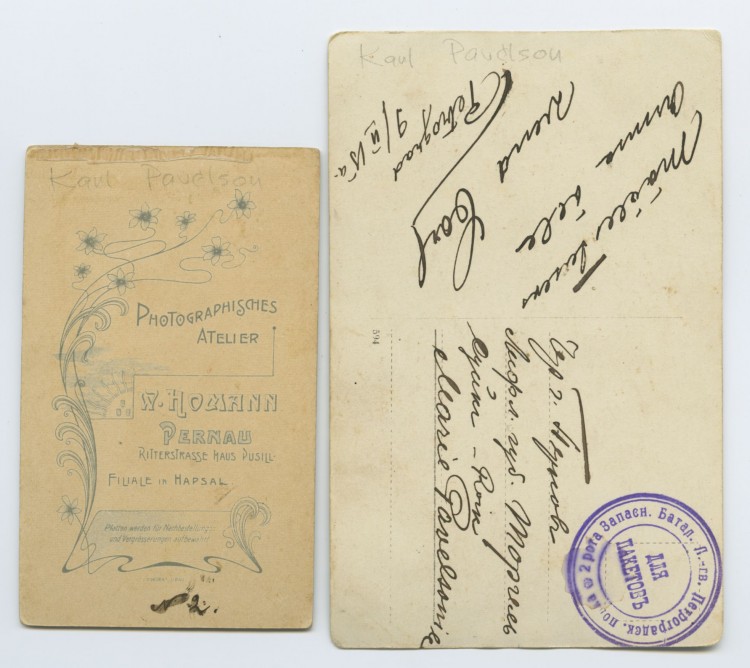 Karl Pavelson
PHOTOGRAPHISCHES
ATELIER
W. HOMANN
PERNAU
RITTERSTRASSE HAUS PUSILL
FILIALE IN HAPSAL
Platten werden für Nachbestellung
und Vergrösserungen aufbewahrt
№ 2.
Karl Pavelson
Mälestuseks
Anna õele
vend
Carl
Petrograd
9/II 15 a.
514
Лифл. губ. Торгель
Marie Pavelsonile
2 рота Запасн. Батал. Л.-гв. Петроградск. полка
ДЛЯ
ПАКЕТОВЪ